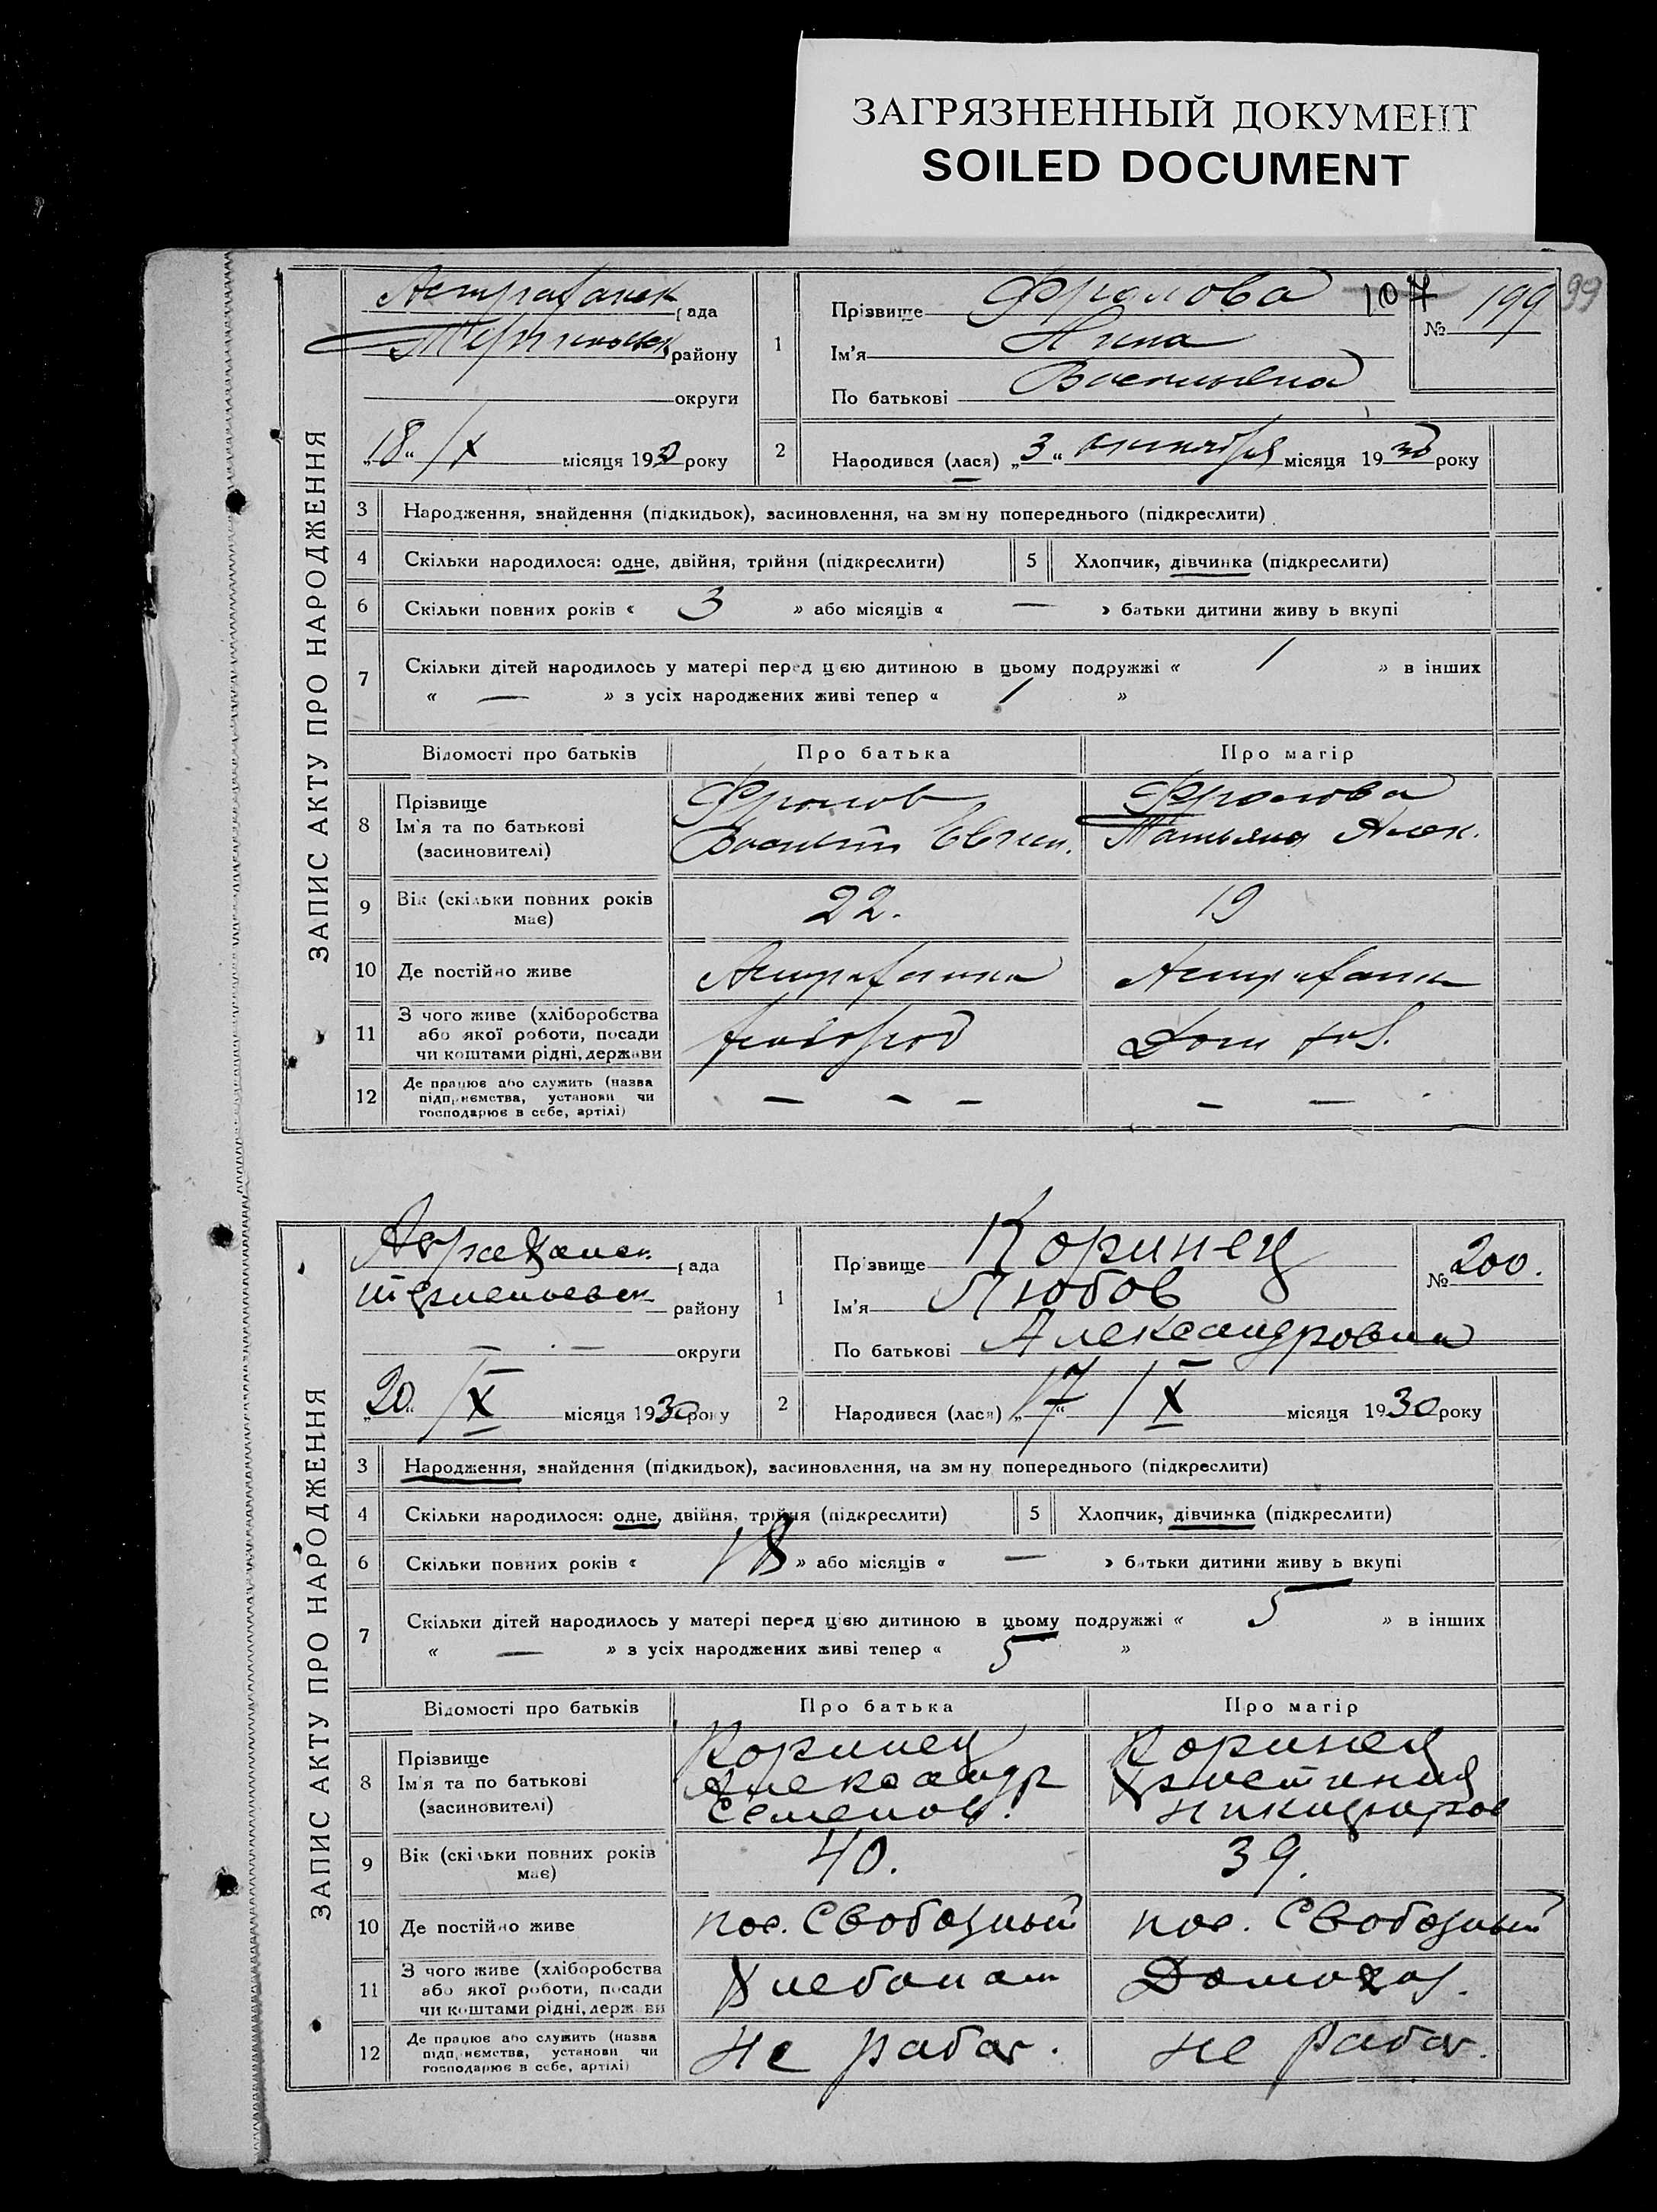 ЗАГРЯЗНЕННЫЙ ДОКУМЕНТ
SOILED DOCUMENT
99
ЗАПИС АКТУ ПРО НАРОДЖЕННЯ
рада
району
округи
„18“ IX місяця 1930 року
1
Прізвище Фролова 107
№ 199
Ім'я Нина
По батькові Васильевна
2
Народився (лася) „3“ місяця 1930 року
3 Народження, знайдення (підкидьок), засиновлення, на зміну попереднього (підкреслити)
4 Скільки народилося: одне, двійня, трійня (підкреслити) 5 Хлопчик, дівчинка (підкреслити)
6 Скільки повних років « 3 » або місяців « — » батьки дитини живуть вкупі
7 Скільки дітей народилось у матері перед цією дитиною в цьому подружжі « 1 » в інших
« — » з усіх народжених живі тепер « 1 »
Відомості про батьків Про батька Про матір
8 Прізвище Фролов Фролова
Ім'я та по батькові Василий Татьяна Алек.
(засиновителі)
9 Вік (скільки повних років має) 22. 19
10 Де постійно живе Астраханка
11 З чого живе (хліборобства
або якої роботи, посади
чи коштами рідні, держави Дом хоз.
12 Де працює або служить (назва
підприємства, установи чи
господарює в себе, артілі) — — — — —
ЗАПИС АКТУ ПРО НАРОДЖЕННЯ
рада
району
— — округи
„20“ IX місяця 1930 року
1
Прізвище Коринец
№ 200.
Ім'я Любов
По батькові Александровна
2
Народився (лася) „17“ IX місяця 1930 року
3 Народження, знайдення (підкидьок), засиновлення, на зміну попереднього (підкреслити)
4 Скільки народилося: одне, двійня, трійня (підкреслити) 5 Хлопчик, дівчинка (підкреслити)
6 Скільки повних років « 18 » або місяців « — » батьки дитини живуть вкупі
7 Скільки дітей народилось у матері перед цією дитиною в цьому подружжі « 5 » в інших
« — » з усіх народжених живі тепер « 5 »
Відомості про батьків Про батька Про матір
8 Прізвище Коринец Коринец
Ім'я та по батькові Александр
(засиновителі) Семенов.
9 Вік (скільки повних років має) 40. 39.
10 Де постійно живе пос. Свободный пос. Свободный
11 З чого живе (хліборобства
або якої роботи, посади
чи коштами рідні, держави Хлебопаш Домохоз.
12 Де працює або служить (назва
підприємства, установи чи
господарює в себе, артілі) не работ. не работ.